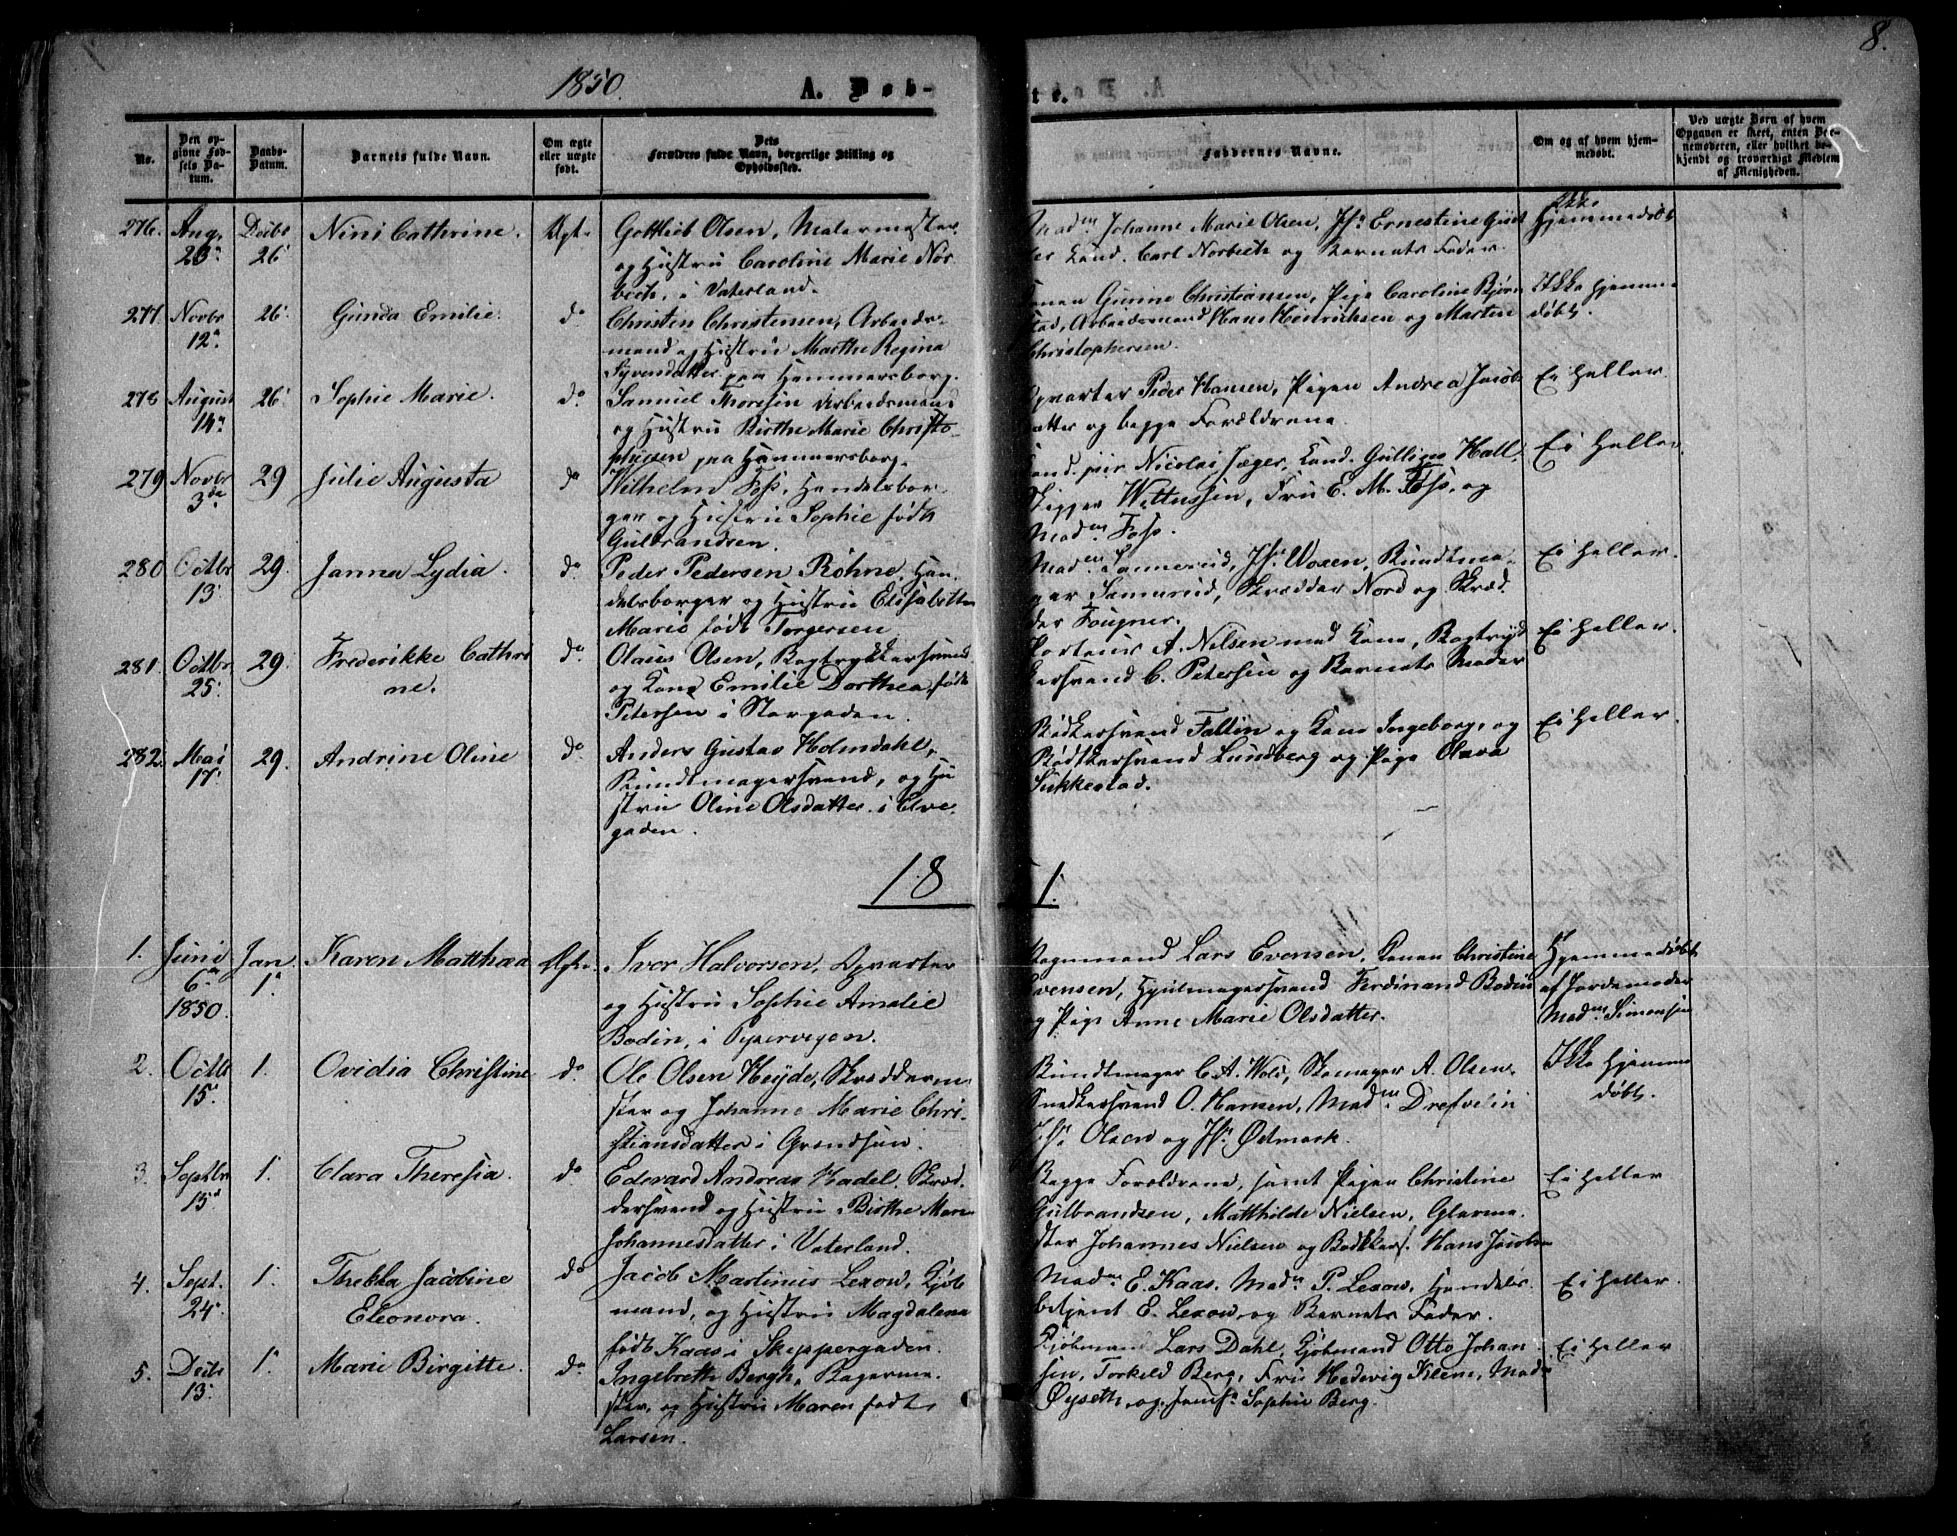 8.
1850.
A. Døb-
te.
No.
Den op-
givne Fød-
sels Da-
tum.
Daabs-
Datum.
Barnets fulde Navn.
Om ægte
eller uægte
født.
Dets
Forældres fulde Navn, borgerlige Stilling og
Opholdssted.
Faddernes Navne.
Om og af hvem hjem-
medøbt.
Ved uægte Børn af hvem
Opgaven er skeet, enten Bar-
nemoderen, eller hvilket be-
kjendt og troværdigt Medlem
af Menigheden.
276. Aug. 23de Decbr 26 Nini Cathrine. Ægte
Gottlieb Olsen, Malermester
og Hustru Caroline Marie Nor
beck, i Vaterland.
Madm Johanne Marie Olsen, Jfr Ernestine
Cand. Carl Norbech og Barnets Fader.
Ikke
hjemmedøbt
277. Novbr 12te 26. Gunda Emilie. do
Christen Christensen, Arbeids-
mand og Hustru Marthe Regina
Syvensdatter paa Hammersborg.
Konen Gurine Christiansen, Pige Caroline Bjørn
stad, Arbeidsmand Hans Hinrichsen og Martin
Christophersen.
Ikke hjemme
døbt.
278 August 14de 26. Sophie Marie. do
Samuel Thoresen Arbeidsmand
og Hustru Birthe Marie Christo-
phersen paa Hammersborg.
Opvarter Peder Hansen, Pigen Andrea Jacobs
datter og begge Forældrene.
Ei heller.
279 Novbr 3de 29 Julie Augusta do
Wilhelm Foss, Handelsbor-
ger og Hustru Sophie født
Gulbrandsen.
Cand. jur. Nicolai Jæger, Cand. Hall,
Skipper Wittussen, Fru E. M. Foss, og
Madm Foss.
Ei heller.
280 Octbr 13 29. Janna Lydia. do
Peder Pedersen Røhne, Han-
delsborger og Hustru Elisabeth
Marie født Torgersen
Madm Sannerud, Jfr Woxen, Bundtma-
ger Sannerud, Skrædder Nord og Skræd
der Fougner.
Ei heller.
281. Octbr 25. 29. Frederikke Cathri
ne. do
Olaus Olsen, Bogtrykkersvend
og Kone Emilie Dorthea, født
Petersen i Storgaden.
A. Nilsen med Kone, Bogtryk
kersvend C. Petersen og Barnets Moder
Ei heller.
282. Mai 17. 29. Andrine Oline do
Anders Gustav Holmdahl,
Bundtmagersvend, og Hu
stru Oline Olsdatter i Elve-
gaden.
Bødkersvend Fallin og Kone Ingeborg, og
Bødkersvend Lundberg og Pige Olava
Sukkestad.
Ei heller.
18 1.
1. Juni 6te 1850. Jan. 1ste Karen Matthæa Ægte.
Iver Halvorsen, Opvarter
og Hustru Sophie Amalie
Bodin, i Pipervigen.
Vognmand Lars Evensen, Konen Christine
Evensen, Hjulmagersvend Ferdinand Bodin
og Pige Anne Marie Olsdatter.
Hjemmedøbt
af Jordemoder
Madm Simonsen
2. Octbr 15. 1. Ovidia Christine do
Ole Olsen Heyde, Skrædderme
ster og Johanne Marie Chri-
stiansdatter i Grændsen.
Bundtmager C. A. Wold, Skomager A. Olsen,
Snedkersvend O. Hansen, Madm Drefvelin
Jfr Olsen og Jfr Ødmark.
Ikke hjemme
døbt.
3. Septbr 15d 1. Clara Theresia. do
Edevard Andreas Kadel, Skræd-
dersvend og Hustru Birthe Marie
Johannesdatter i Vaterland.
Begge Forældrene, samt Pigen Christine
Gulbrandsen, Matthilde Nielsen, Glarme-
ster Johannes Nielsen og Bødkkers. Hans Jacobsen
Ei heller
4. Sept. 24. 1. Thekla Jacobine
Eleonora. do
Jacob Martinus Lexow, Kjøb
mand, og Hustru Magdalena
født Kaas i Skippergaden.
Madm E. Kaas, Madm P. Lexow, Handels-
betjent E. Lexow, og Barnets Fader.
Ei heller.
5. Decbr 13. 1. Marie Birgitte. do
Ingebreth Bergh, Bagerme-
ster, og Hustru Maren født
Larsen.
Kjøbmand Lars Dahl, Kjøbmand Otto Johan
sen, Torkeld Berg, Fru Hedevig Klem, Mad
Øyseth, og Jomf. Sophie Berg.
Ei heller